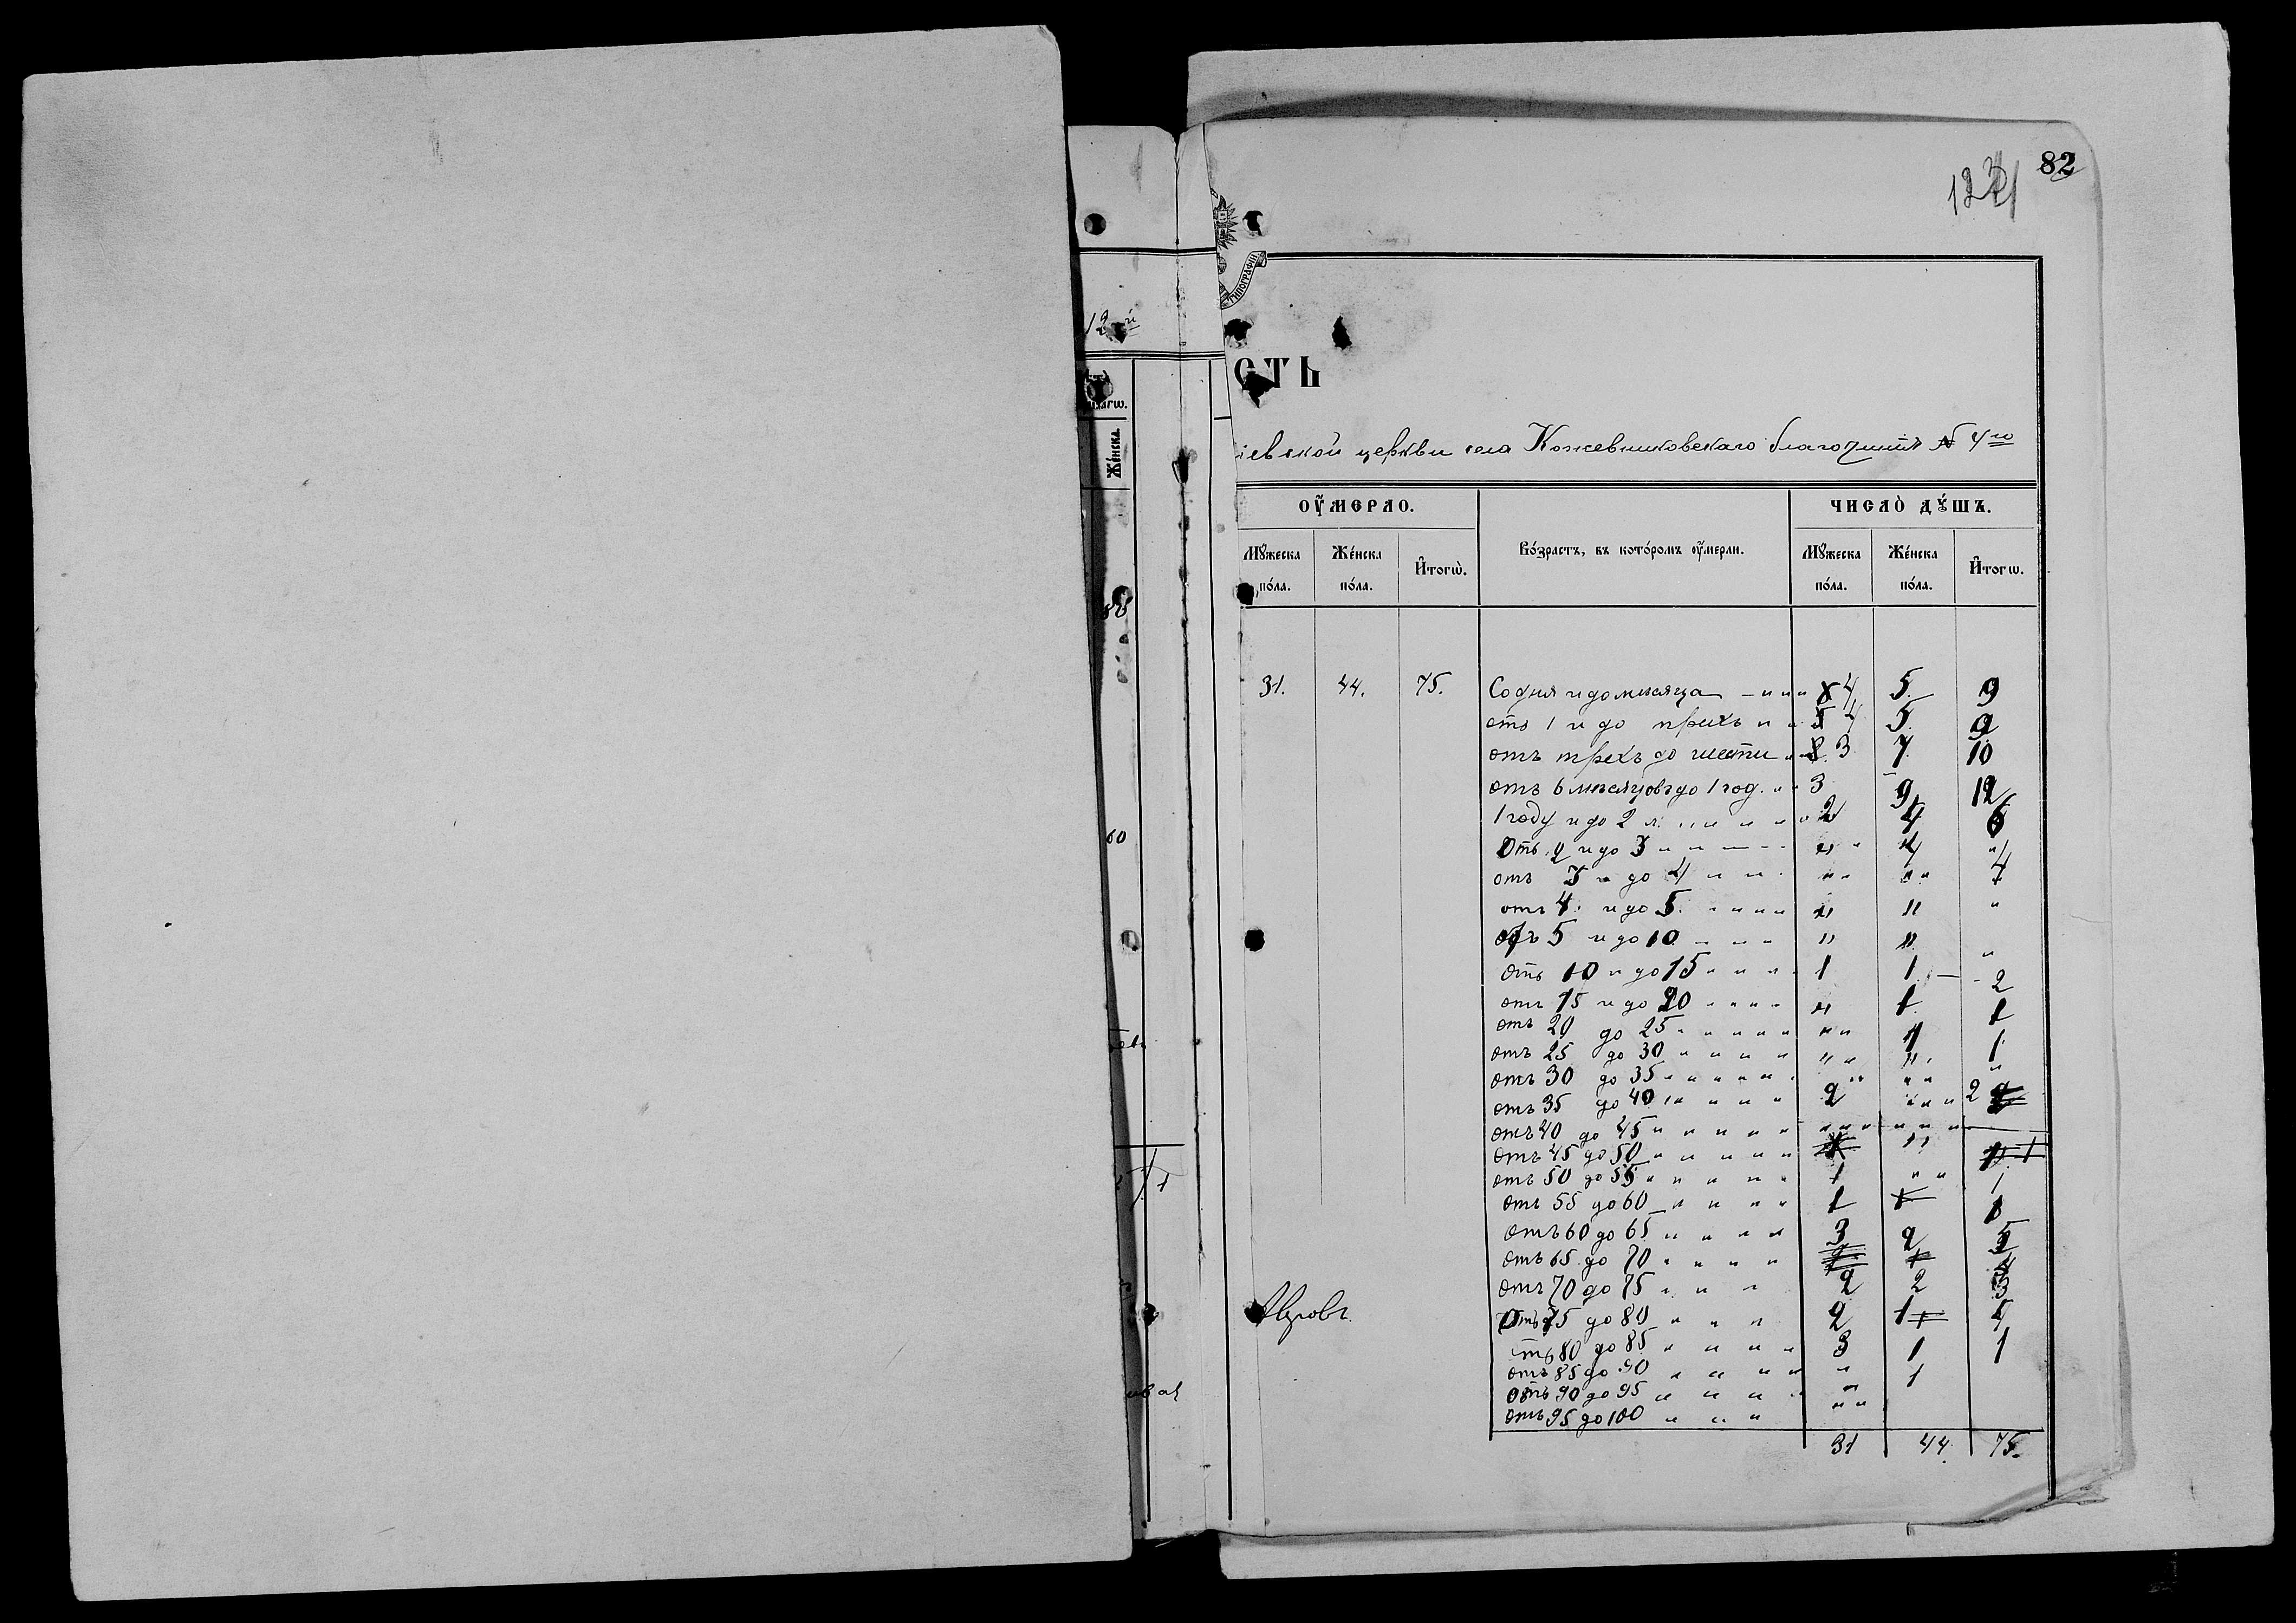 82
12й
ТИПОГРАФІИ
СТЬ
Женска.
іевской церкви села Кожевниковскаго благочинія № 4го
Оумерло.
Возрастъ, въ которомъ оумерли.
Число душъ.
Мужеска пола.
Женска пола.
Итогω.
Мужеска пола.
Женска пола.
Итогω.
31. 44. 75.
Со дня и до мѣсяца 4 5 9
отъ 1 и до трехъ 4 5 9
отъ трехъ до шести 3 7 10
отъ 6 мѣсяцовъ до 1 год. 3 9 12
1 году и до 2 л. 2 4 6
Отъ 2 и до 3 " 4 "
отъ 3 и до 4 " " 4
отъ 4 и до 5 " " "
отъ 5 и до 10 " " "
отъ 10 и до 15 1 1 2
отъ 15 и до 20 " 1 1
отъ 20 до 25 " 1 1
отъ 25 до 30 " " "
отъ 30 до 35 " "
отъ 35 до 40 2 " 2
отъ 40 до 45 " "
отъ 45 до 50 " 1
отъ 50 до 55 1 " 1
отъ 55 до 60 1 1
отъ 60 до 65 3 2 5
отъ 65 до 70
отъ 70 до 75 2 2
Отъ 75 до 80 2 1
отъ 80 до 85 3 1
отъ 85 до 90 " 1
отъ 90 до 95 "
отъ 95 до 100 "
31 44. 75.
60